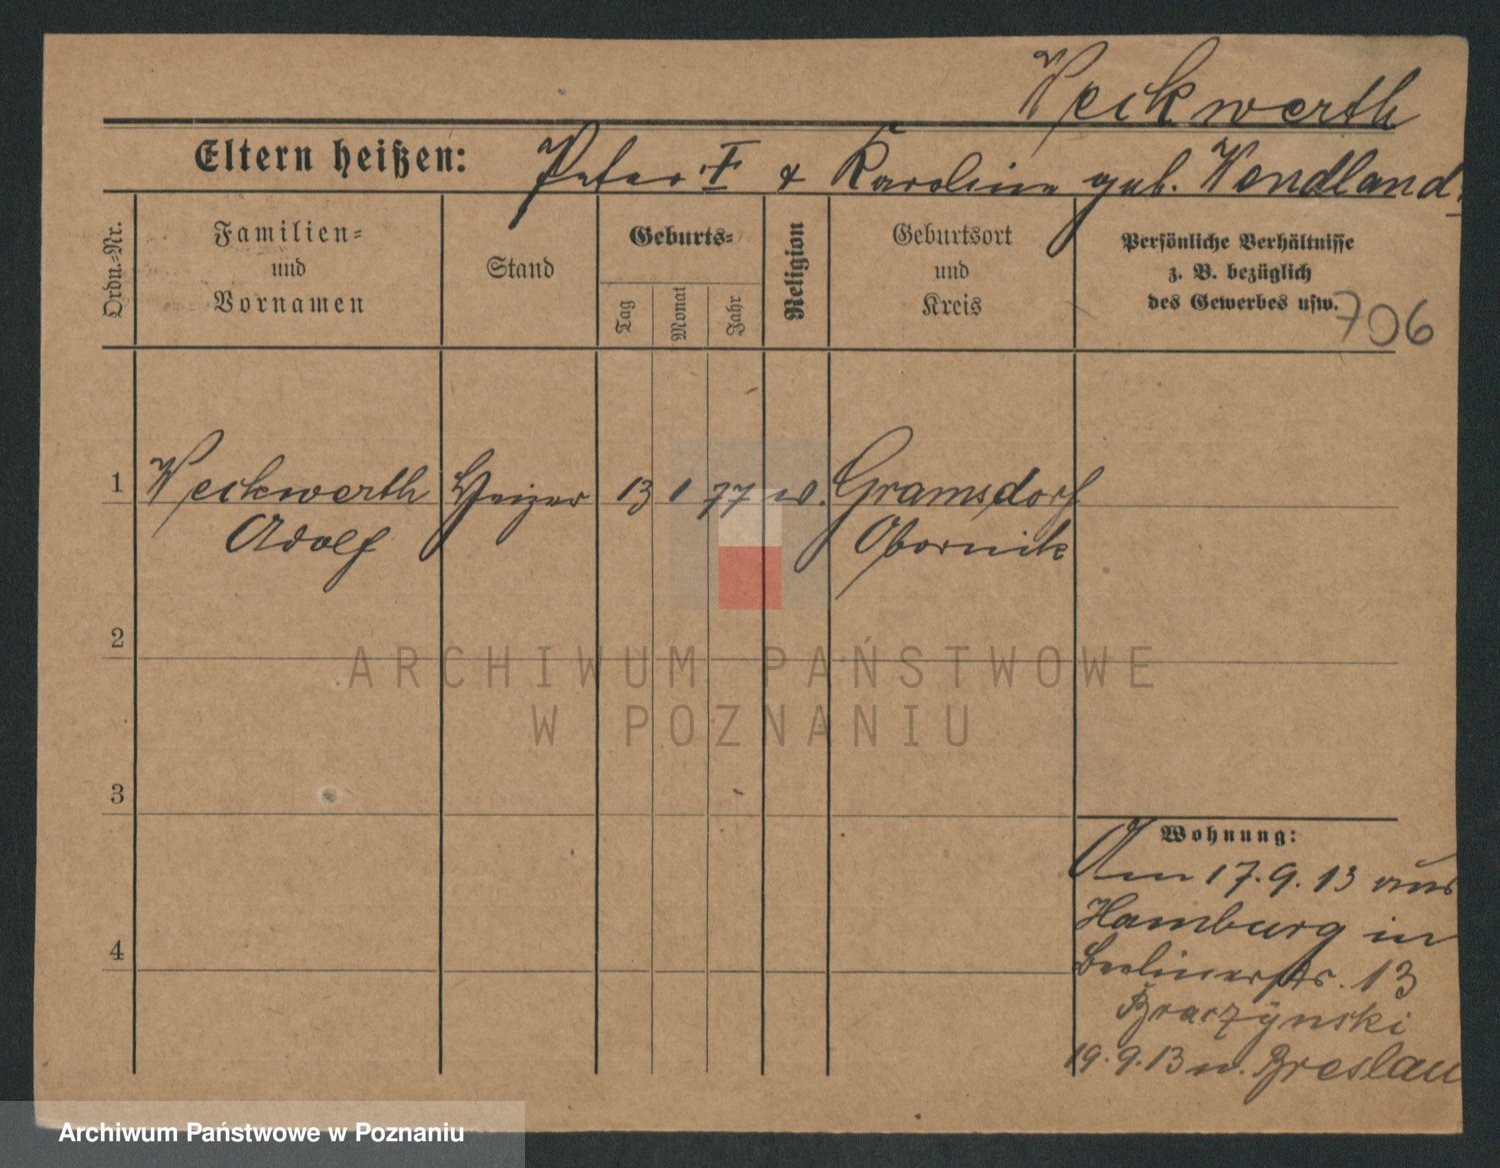 Weckwerth
Eltern heißen: Peter I & Karoline geb. Wendland.
Ordn.-Nr.
Familien-
und
Vornamen
Stand
Geburts-
Tag
Monat
Jahr
Religion
Geburtsort
und
Kreis
Persönliche Verhältnisse
z. B. bezüglich
des Gewerbes usw.
706
1 Weckwerth Heizer 13 1 77 ev. Gramsdorf
Adolf Obornik
2
3
4
Wohnung:
Am 17.9.13 aus
Hamburg in
Berlinerstr. 13
19.9.13 n. Breslau
ARCHIWUM PAŃSTWOWE
W POZNANIU
Archiwum Państwowe w Poznaniu